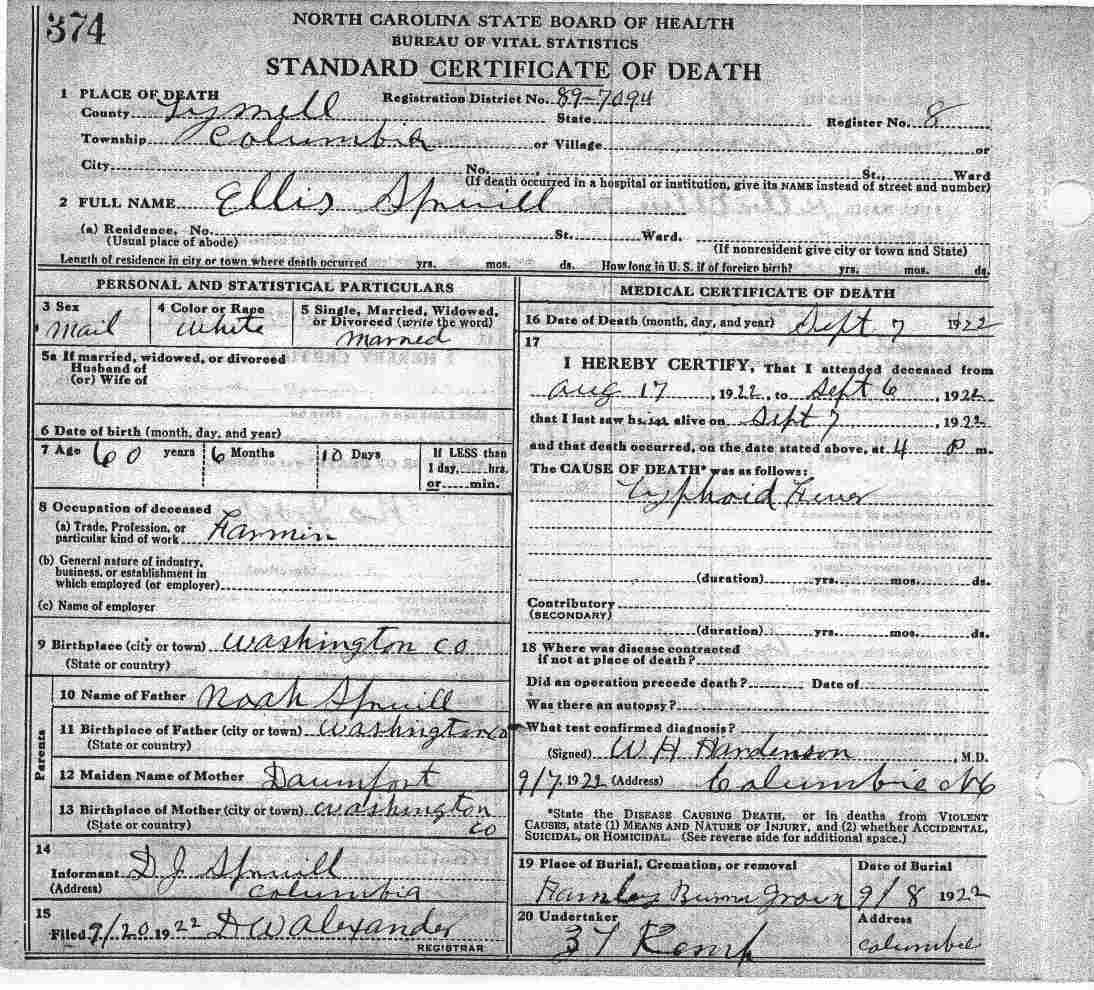 374
NORTH CAROLINA STATE BOARD OF HEALTH
BUREAU OF VITAL STATISTICS
STANDARD CERTIFICATE OF DEATH
1 PLACE OF DEATH Registration District No. 89-7094
County Tyrrell State Register No. 8
Township Columbia or Village or
City No. St., Ward
(If death occurred in a hospital or institution, give its NAME instead of street and number)
2 FULL NAME Ellis Spruill
(a) Residence, No. St. Ward.
(Usual place of abode) (If nonresident give city or town and State)
Length of residence in city or town where death occurred yrs. mos. ds. How long in U. S. if of foreign birth? yrs. mos. ds.
PERSONAL AND STATISTICAL PARTICULARS
3 Sex 4 Color or Race 5 Single, Married, Widowed,
or Divorced (write the word)
Mail White Married
5a If married, widowed, or divorced
Husband of
(or) Wife of
6 Date of birth (month, day, and year)
7 Age 60 years 6 Months 10 Days If LESS than
1 day, hrs.
or min.
8 Occupation of deceased
(a) Trade, Profession, or
particular kind of work Farmin
(b) General nature of industry,
business, or establishment in
which employed (or employer)
(c) Name of employer
9 Birthplace (city or town) Washington Co
(State or country)
Parents
10 Name of Father Noah Spruill
11 Birthplace of Father (city or town) Washington Co
(State or country)
12 Maiden Name of Mother Daumfort
13 Birthplace of Mother (city or town) Washington
(State or country) Co
14
Informant D. J. Spruill
(Address) Columbia
15
Filed 9/20 1922 D W Alexander
REGISTRAR
MEDICAL CERTIFICATE OF DEATH
16 Date of Death (month, day, and year) Sept 7 1922
17
I HEREBY CERTIFY, That I attended deceased from
Aug 17, 1922, to Sept 6, 1922
that I last saw him alive on Sept 7 1922
and that death occurred, on the date stated above, at 4 P m.
The CAUSE OF DEATH* was as follows:
Typhoid Fever
(duration) yrs. mos. ds.
Contributory
(SECONDARY)
(duration) yrs. mos. ds.
18 Where was disease contracted
if not at place of death?
Did an operation precede death? Date of
Was there an autopsy?
What test confirmed diagnosis?
(Signed) W H Hardenson, M.D.
9/7 1922 (Address) Columbia NC
*State the DISEASE CAUSING DEATH, or in deaths from VIOLENT
CAUSES, state (1) MEANS AND NATURE OF INJURY, and (2) whether ACCIDENTAL,
SUICIDAL, OR HOMICIDAL. (See reverse side for additional space.)
19 Place of Burial, Cremation, or removal Date of Burial
9/8 1922
20 Undertaker Address
Kemp Columbia